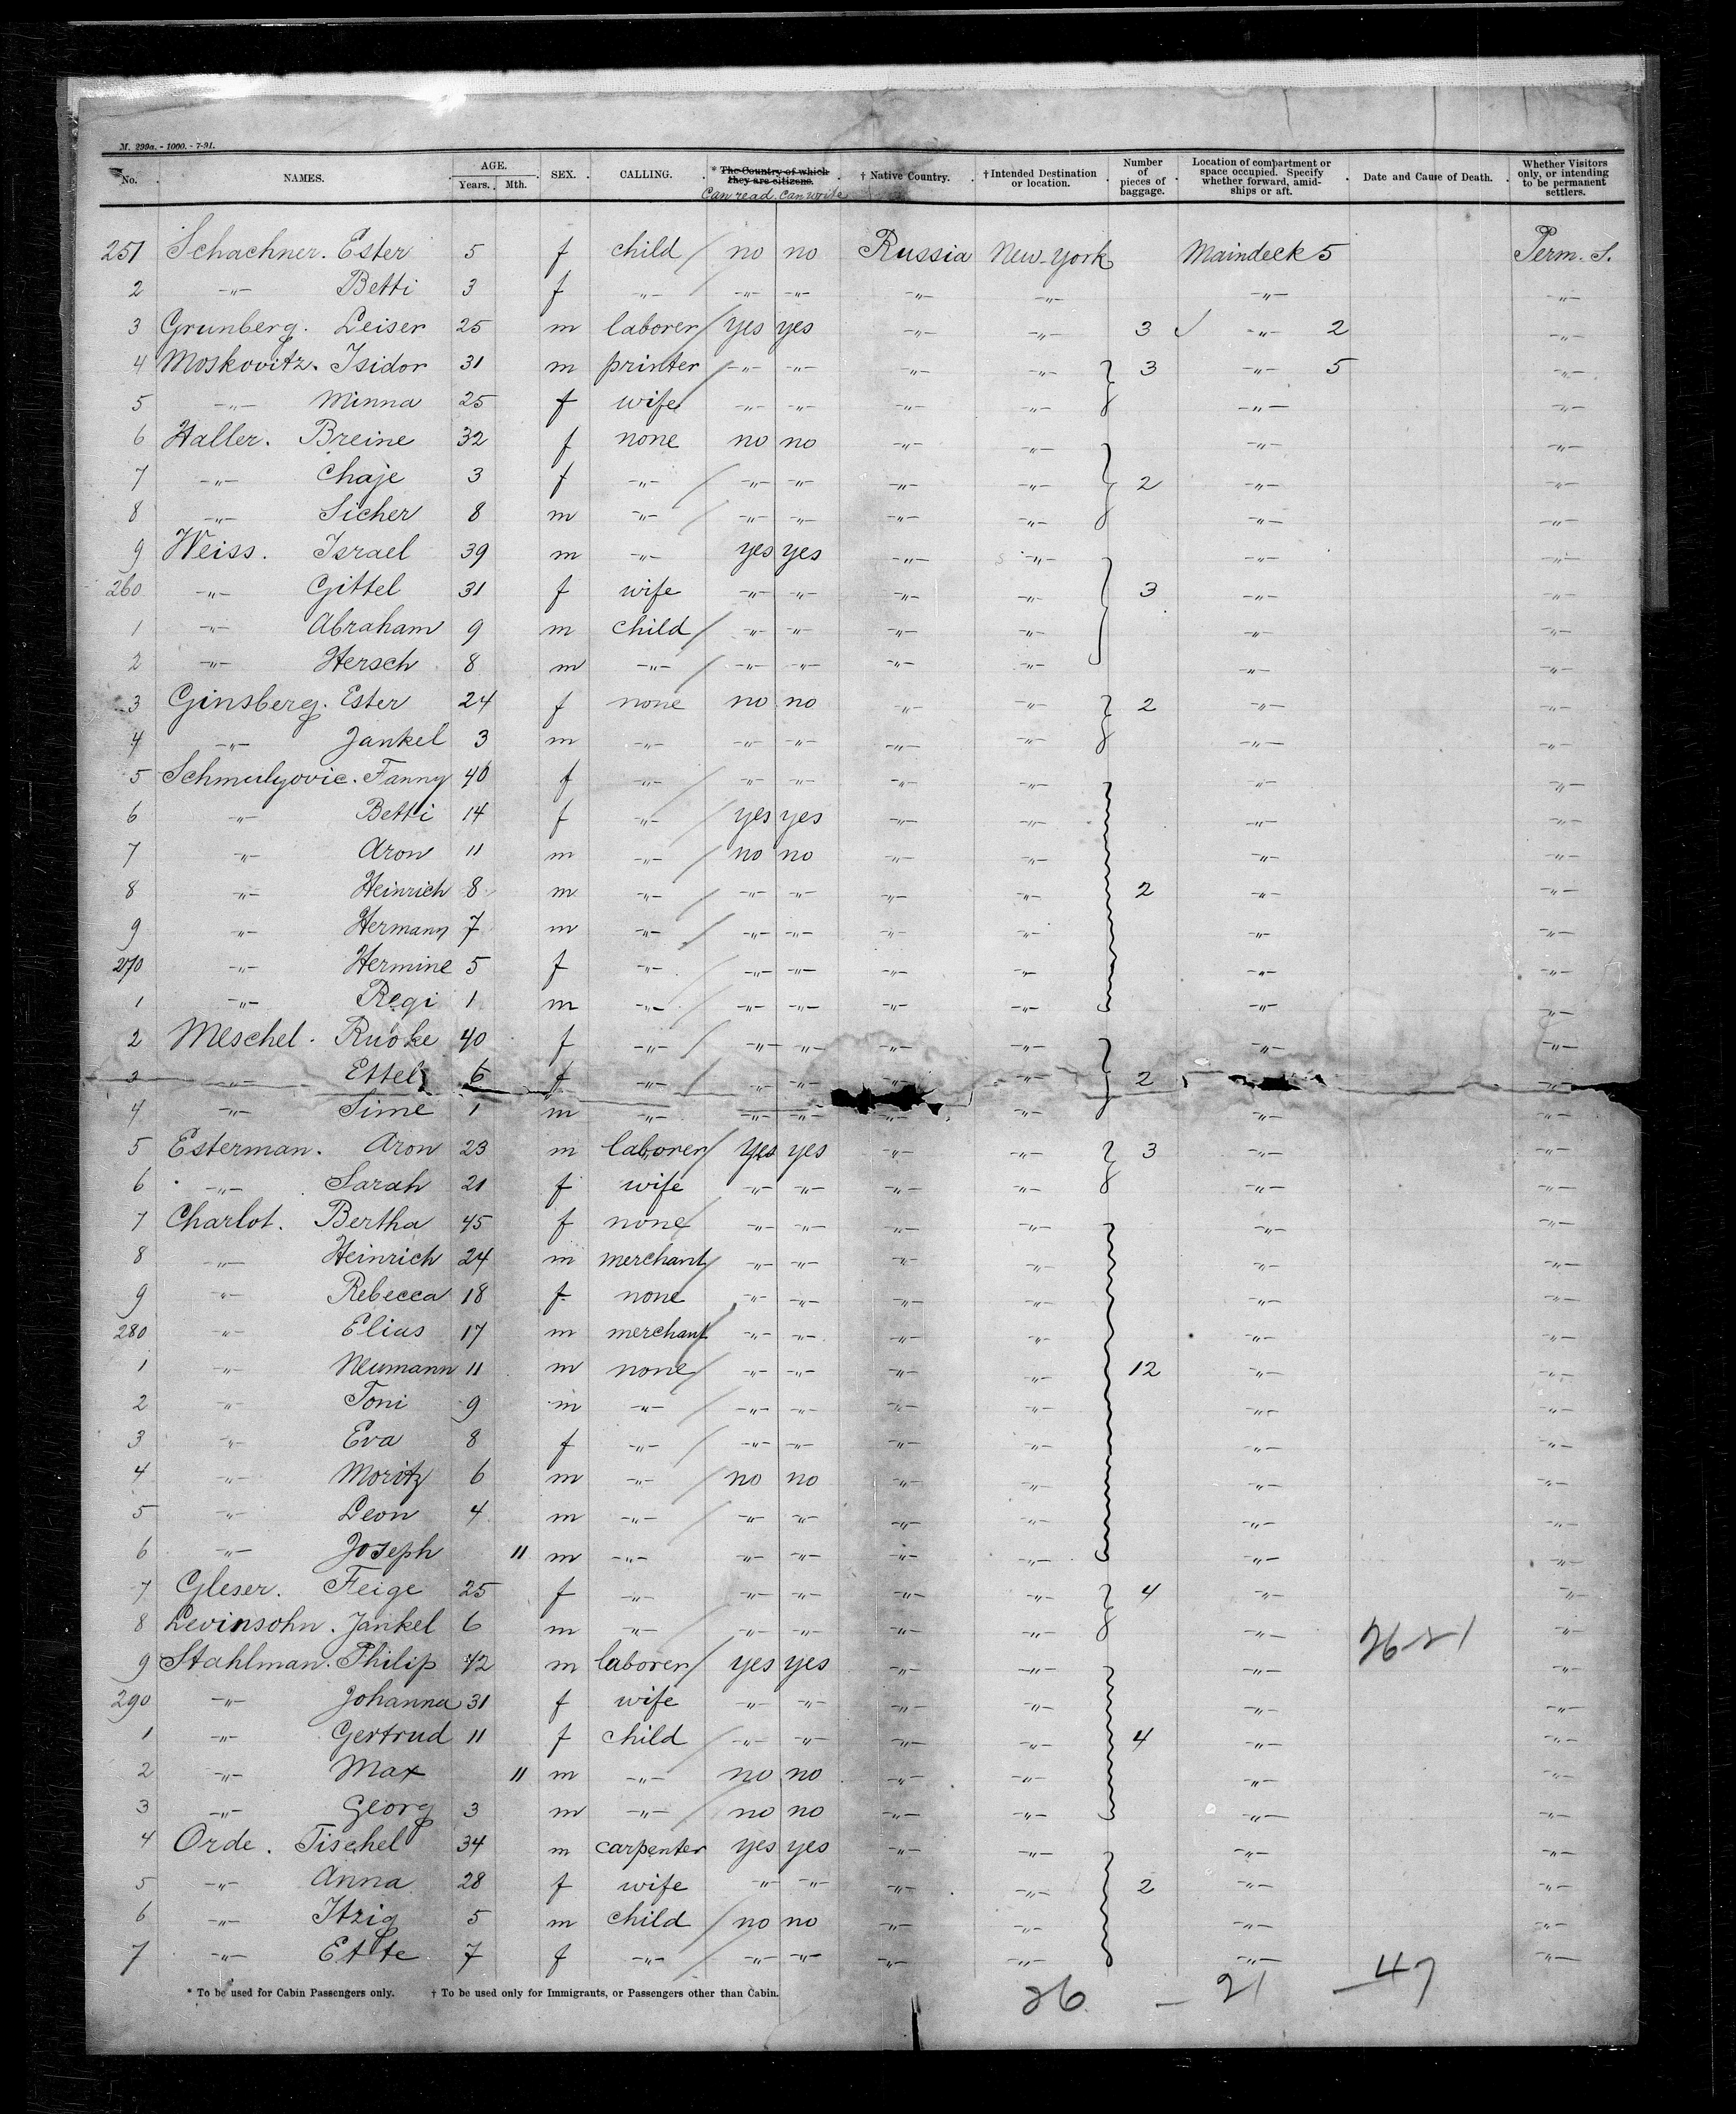 M. 299a. - 1000. - 7-91.
No. NAMES. AGE. Years. Mth. SEX. CALLING. * The Country of which they are citizens. Can read. Can write † Native Country. † Intended Destination or location. Number of pieces of baggage. Location of compartment or space occupied. Specify whether forward, amidships or aft. Date and Cause of Death. Whether Visitors only, or intending to be permanent settlers.
251 Schachner. Ester 5 f child / no no Russia New-York Maindeck 5 Perm. S.
2 -"- Betti 3 f -"- -"- -"- -"- -"- -"- -"-
3 Grunberg. Leiser 25 m laborer / yes yes -"- -"- 3 ✓ -"- 2 -"-
4 Moskovitz. Isidor 31 m printer / -"- -"- -"- -"- 3 -"- 5 -"-
5 -"- Minna 25 f wife -"- -"- -"- -"- -"- -"-
6 Haller. Breine 32 f none no no -"- -"- -"- -"-
7 -"- Chaje 3 f -"- / -"- -"- -"- -"- 2 -"- -"-
8 -"- Sicher 8 m -"- / -"- -"- -"- -"- -"- -"-
9 Weiss. Israel 39 m -"- yes yes -"- -"- -"- -"-
260 -"- Gittel 31 f wife -"- -"- -"- -"- 3 -"- -"-
1 -"- Abraham 9 m child / -"- -"- -"- -"- -"- -"-
2 -"- Hersch 8 m -"- / -"- -"- -"- -"- -"- -"-
3 Ginsberg. Ester 24 f none no no -"- -"- 2 -"- -"-
4 -"- Jankel 3 m -"- -"- -"- -"- -"- -"- -"-
5 Schmulyovic. Fanny 40 f -"- / -"- -"- -"- -"- -"- -"-
6 -"- Betti 14 f -"- / yes yes -"- -"- -"- -"-
7 -"- Aron 11 m -"- / no no -"- -"- -"- -"-
8 -"- Heinrich 8 m -"- / -"- -"- -"- -"- 2 -"- -"-
9 -"- Hermann 7 m -"- / -"- -"- -"- -"- -"- -"-
270 -"- Hermine 5 f -"- / -"- -"- -"- -"- -"- -"-
1 -"- Regi 1 m -"- / -"- -"- -"- -"- -"- -"-
2 Meschel. 40 f -"- / -"- -"- -"- -"- -"- -"-
3 -"- Ettel 6 f -"- / -"- -"- -"- -"- 2 -"-
4 -"- Sime 1 m -"- -"- -"- -"- -"- -"-
5 Esterman. Aron 23 m laborer / yes yes -"- -"- 3 -"- -"-
6 -"- Sarah 21 f wife -"- -"- -"- -"- -"- -"-
7 Charlot. Bertha 45 f none / -"- -"- -"- -"- -"- -"-
8 -"- Heinrich 24 m merchant / -"- -"- -"- -"- -"- -"-
9 -"- Rebecca 18 f none -"- -"- -"- -"- -"- -"-
280 -"- Elias 17 m merchant / -"- -"- -"- -"- -"- -"-
1 -"- Neumann 11 m none / -"- -"- -"- -"- 12 -"- -"-
2 -"- Toni 9 m -"- / -"- -"- -"- -"- -"- -"-
3 -"- Eva 8 f -"- / -"- -"- -"- -"- -"- -"-
4 -"- Moritz 6 m -"- / no no -"- -"- -"- -"-
5 -"- Leon 4 m -"- / -"- -"- -"- -"- -"- -"-
6 -"- Joseph 11 m -"- -"- -"- -"- -"- -"- -"-
7 Gleser. Feige 25 f -"- -"- -"- -"- -"- 4 -"- -"-
8 Levinsohn. Jankel 6 m -"- / -"- -"- -"- -"- -"- 26-21 -"-
9 Stahlman. Philip 42 m laborer / yes yes -"- -"- -"- -"-
290 -"- Johanna 31 f wife -"- -"- -"- -"- -"- -"-
1 -"- Gertrud 11 f child / -"- -"- -"- -"- 4 -"- -"-
2 -"- Max 11 m -"- no no -"- -"- -"- -"-
3 -"- Georg 3 m -"- / no no -"- -"- -"- -"-
4 Orde. Tischel 34 m carpenter yes yes -"- -"- -"- -"-
5 -"- Anna 28 f wife -"- -"- -"- -"- 2 -"- -"-
6 -"- Itzig 5 m child / no no -"- -"- -"- -"-
7 -"- Ette 7 f -"- / -"- -"- -"- -"- -"- -"-
* To be used for Cabin Passengers only. † To be used only for Immigrants, or Passengers other than Cabin.
26 - 21 - 47